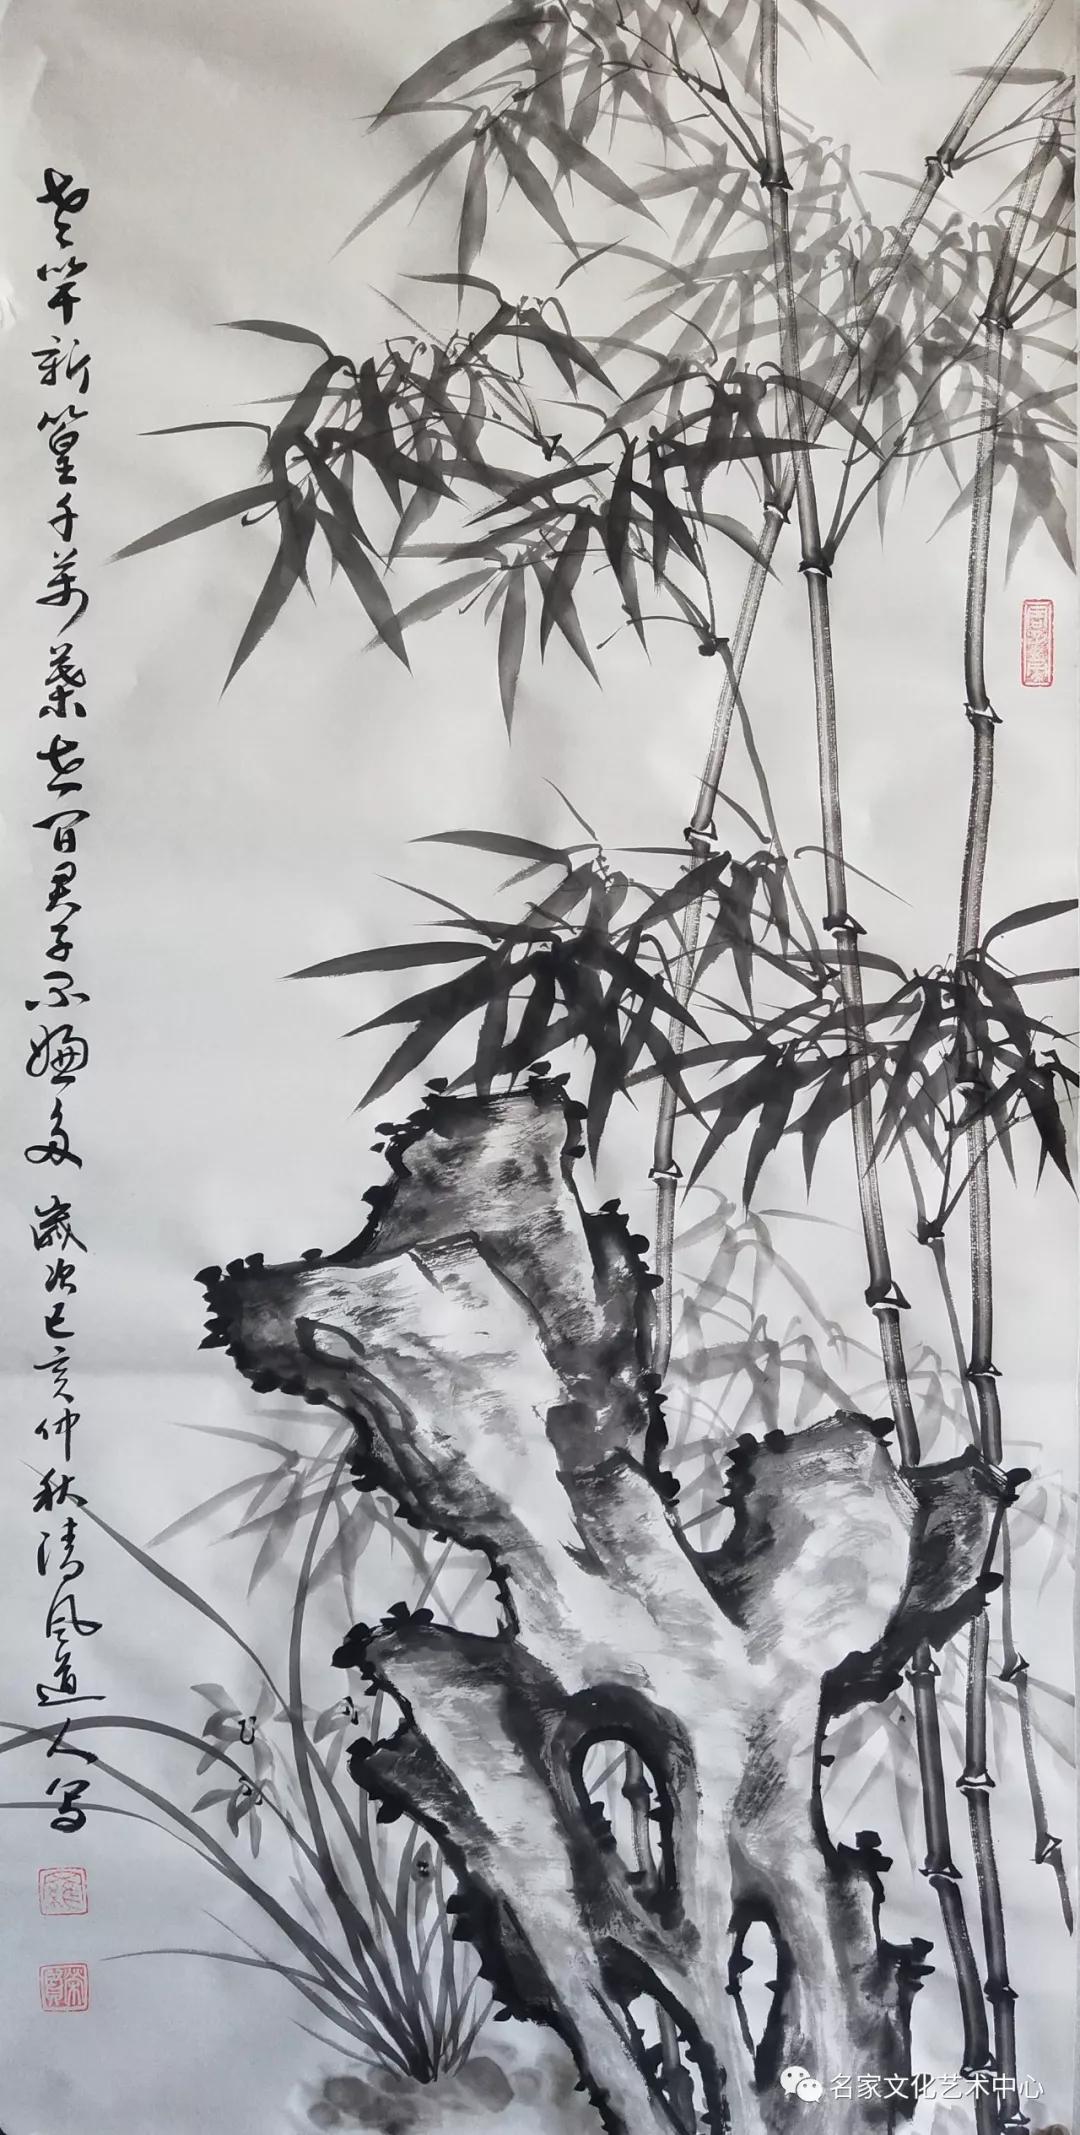 老竿新篁千万叶世间君子不嫌多 岁次己亥仲秋清风道人写
名家文化艺术中心